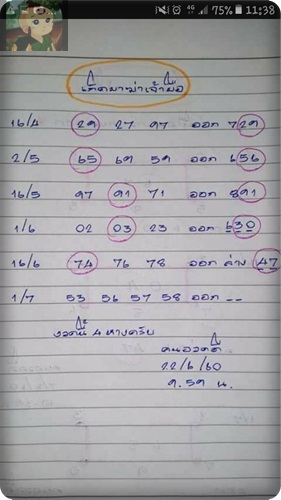 4G 75% 11:38
เกิดมาฆ่าเจ้ามือ
16/4 29 27 97 ออก 729
2/5 65 69 59 ออก 656
16/5 97 91 71 ออก 891
1/6 02 03 23 ออก 630
16/6 74 76 78 ออก ล่าง 47
1/7 53 56 57 58 ออก --
งวดนี้ 4 หางครับ
คนอวดดี
22/6/60
9.59 น.